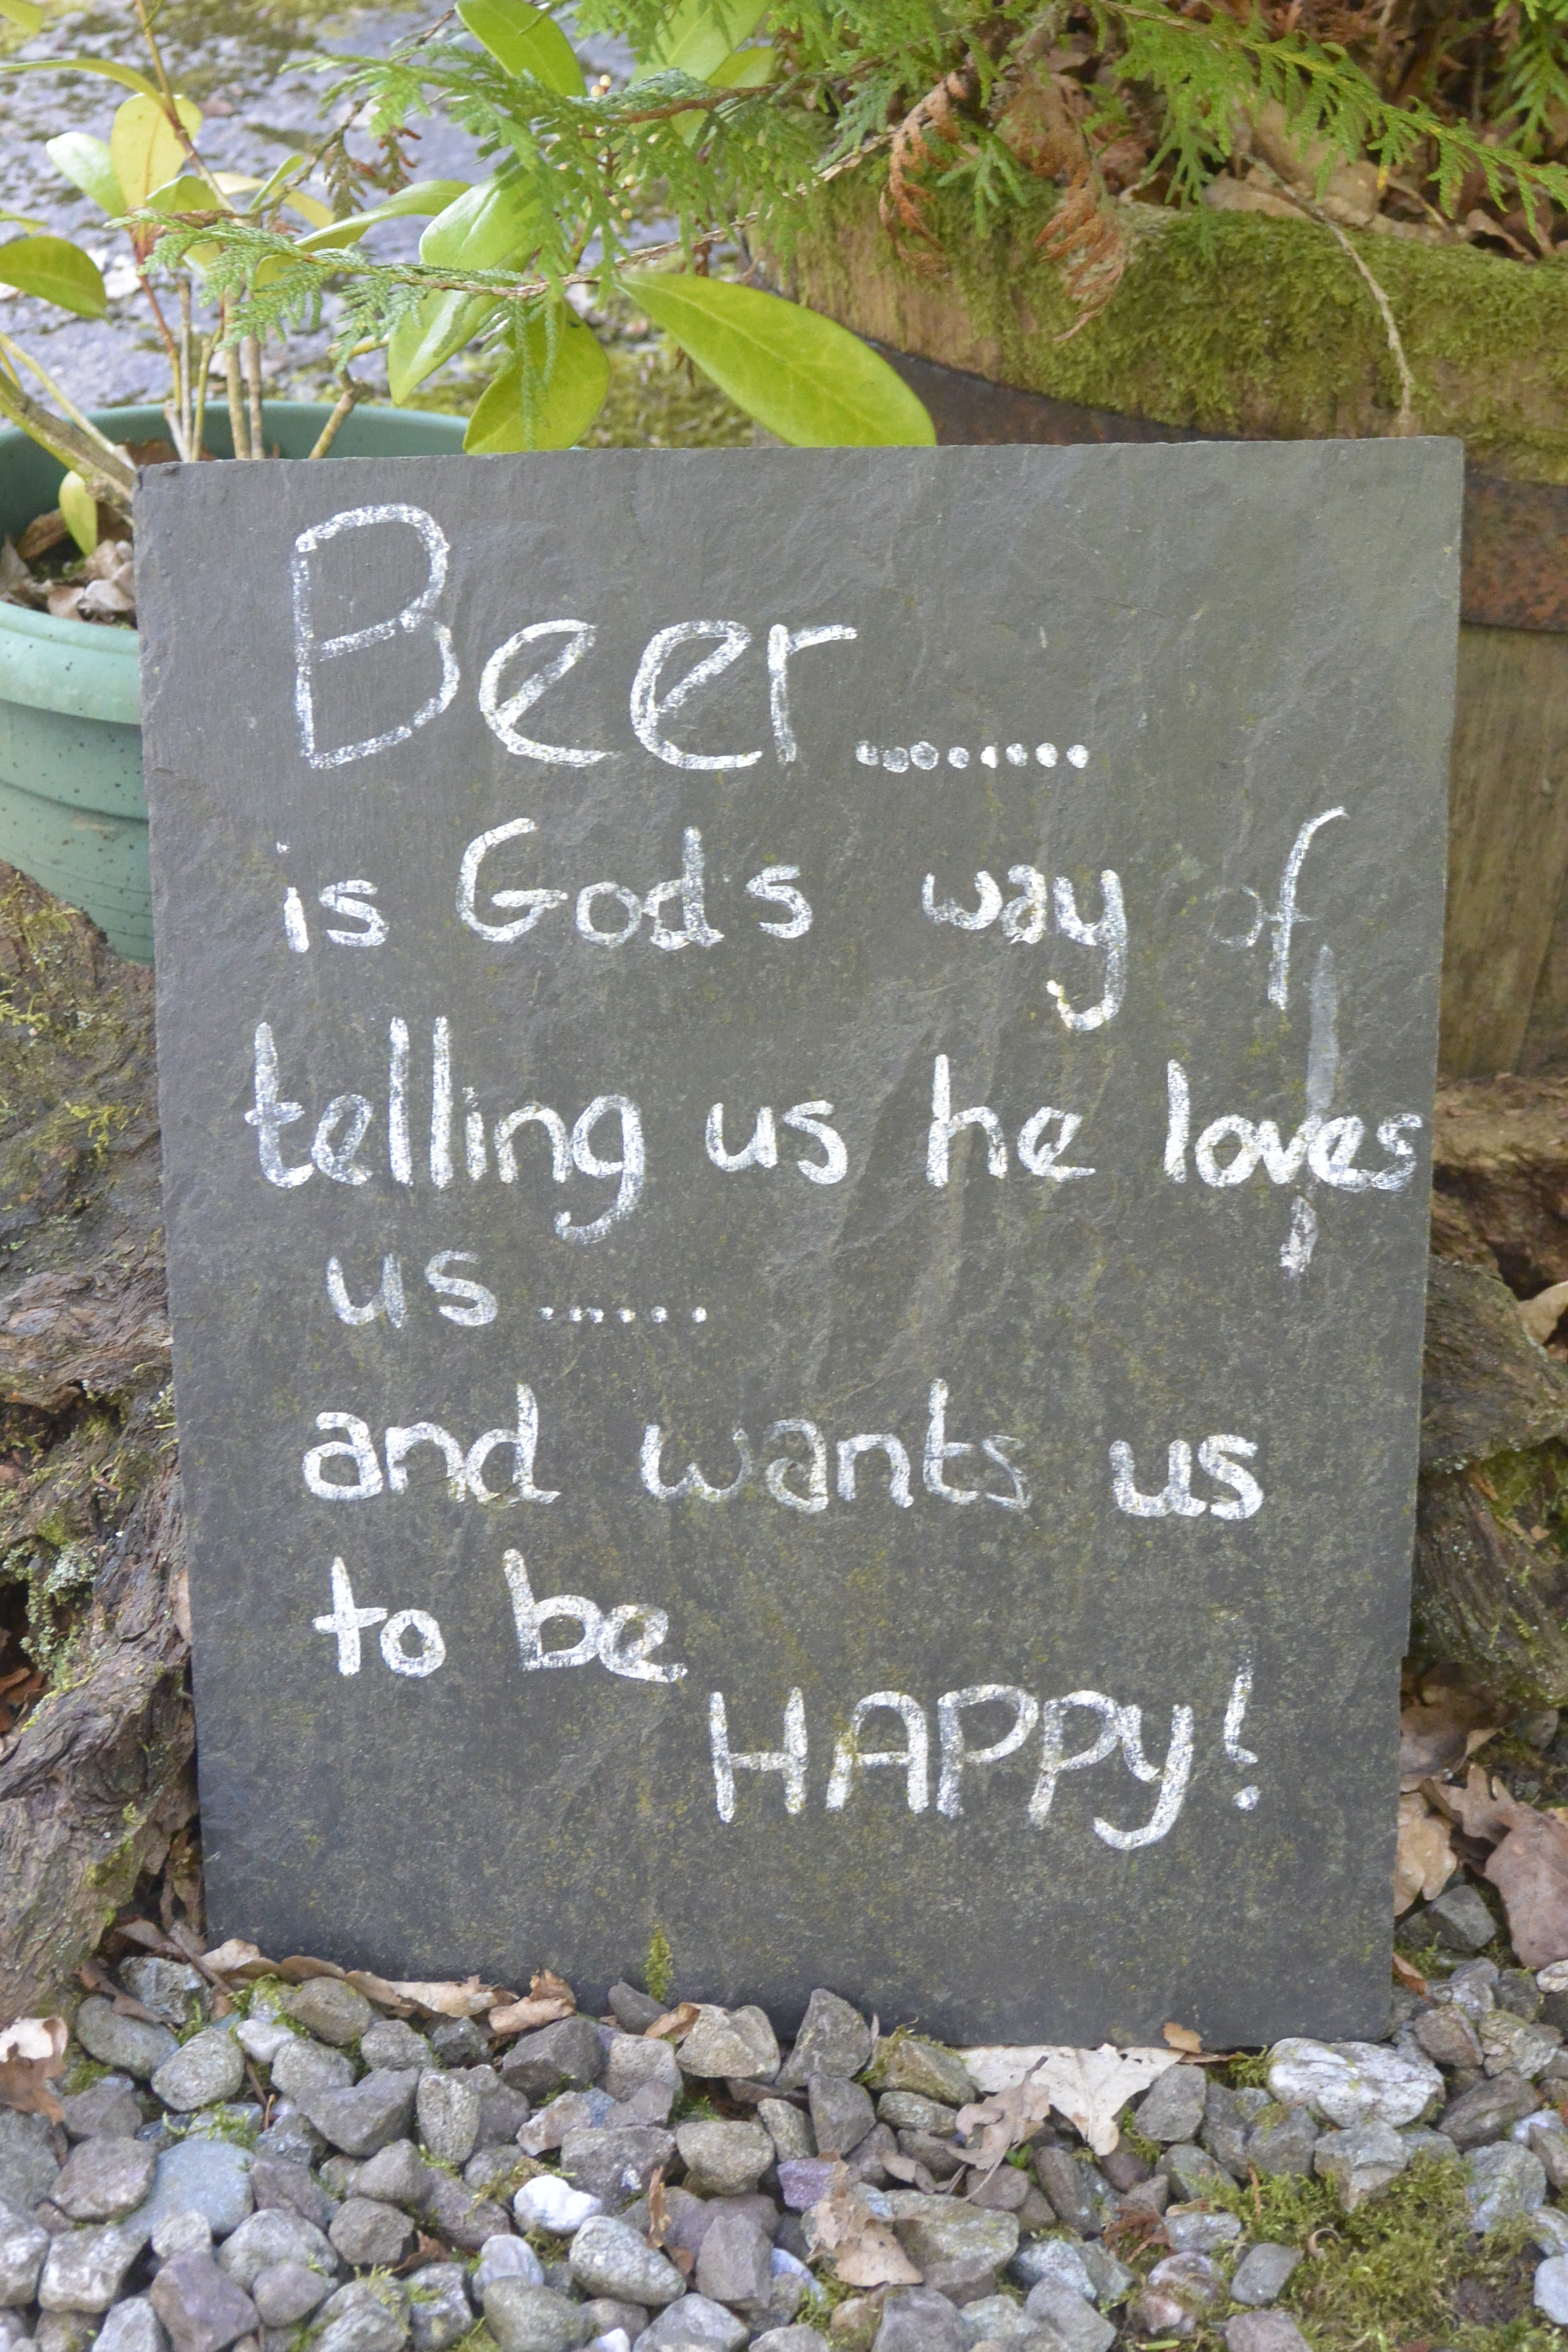 Beer........
is Gods way of
telling us he loves
us......
and wants us
to be
HAPPy!